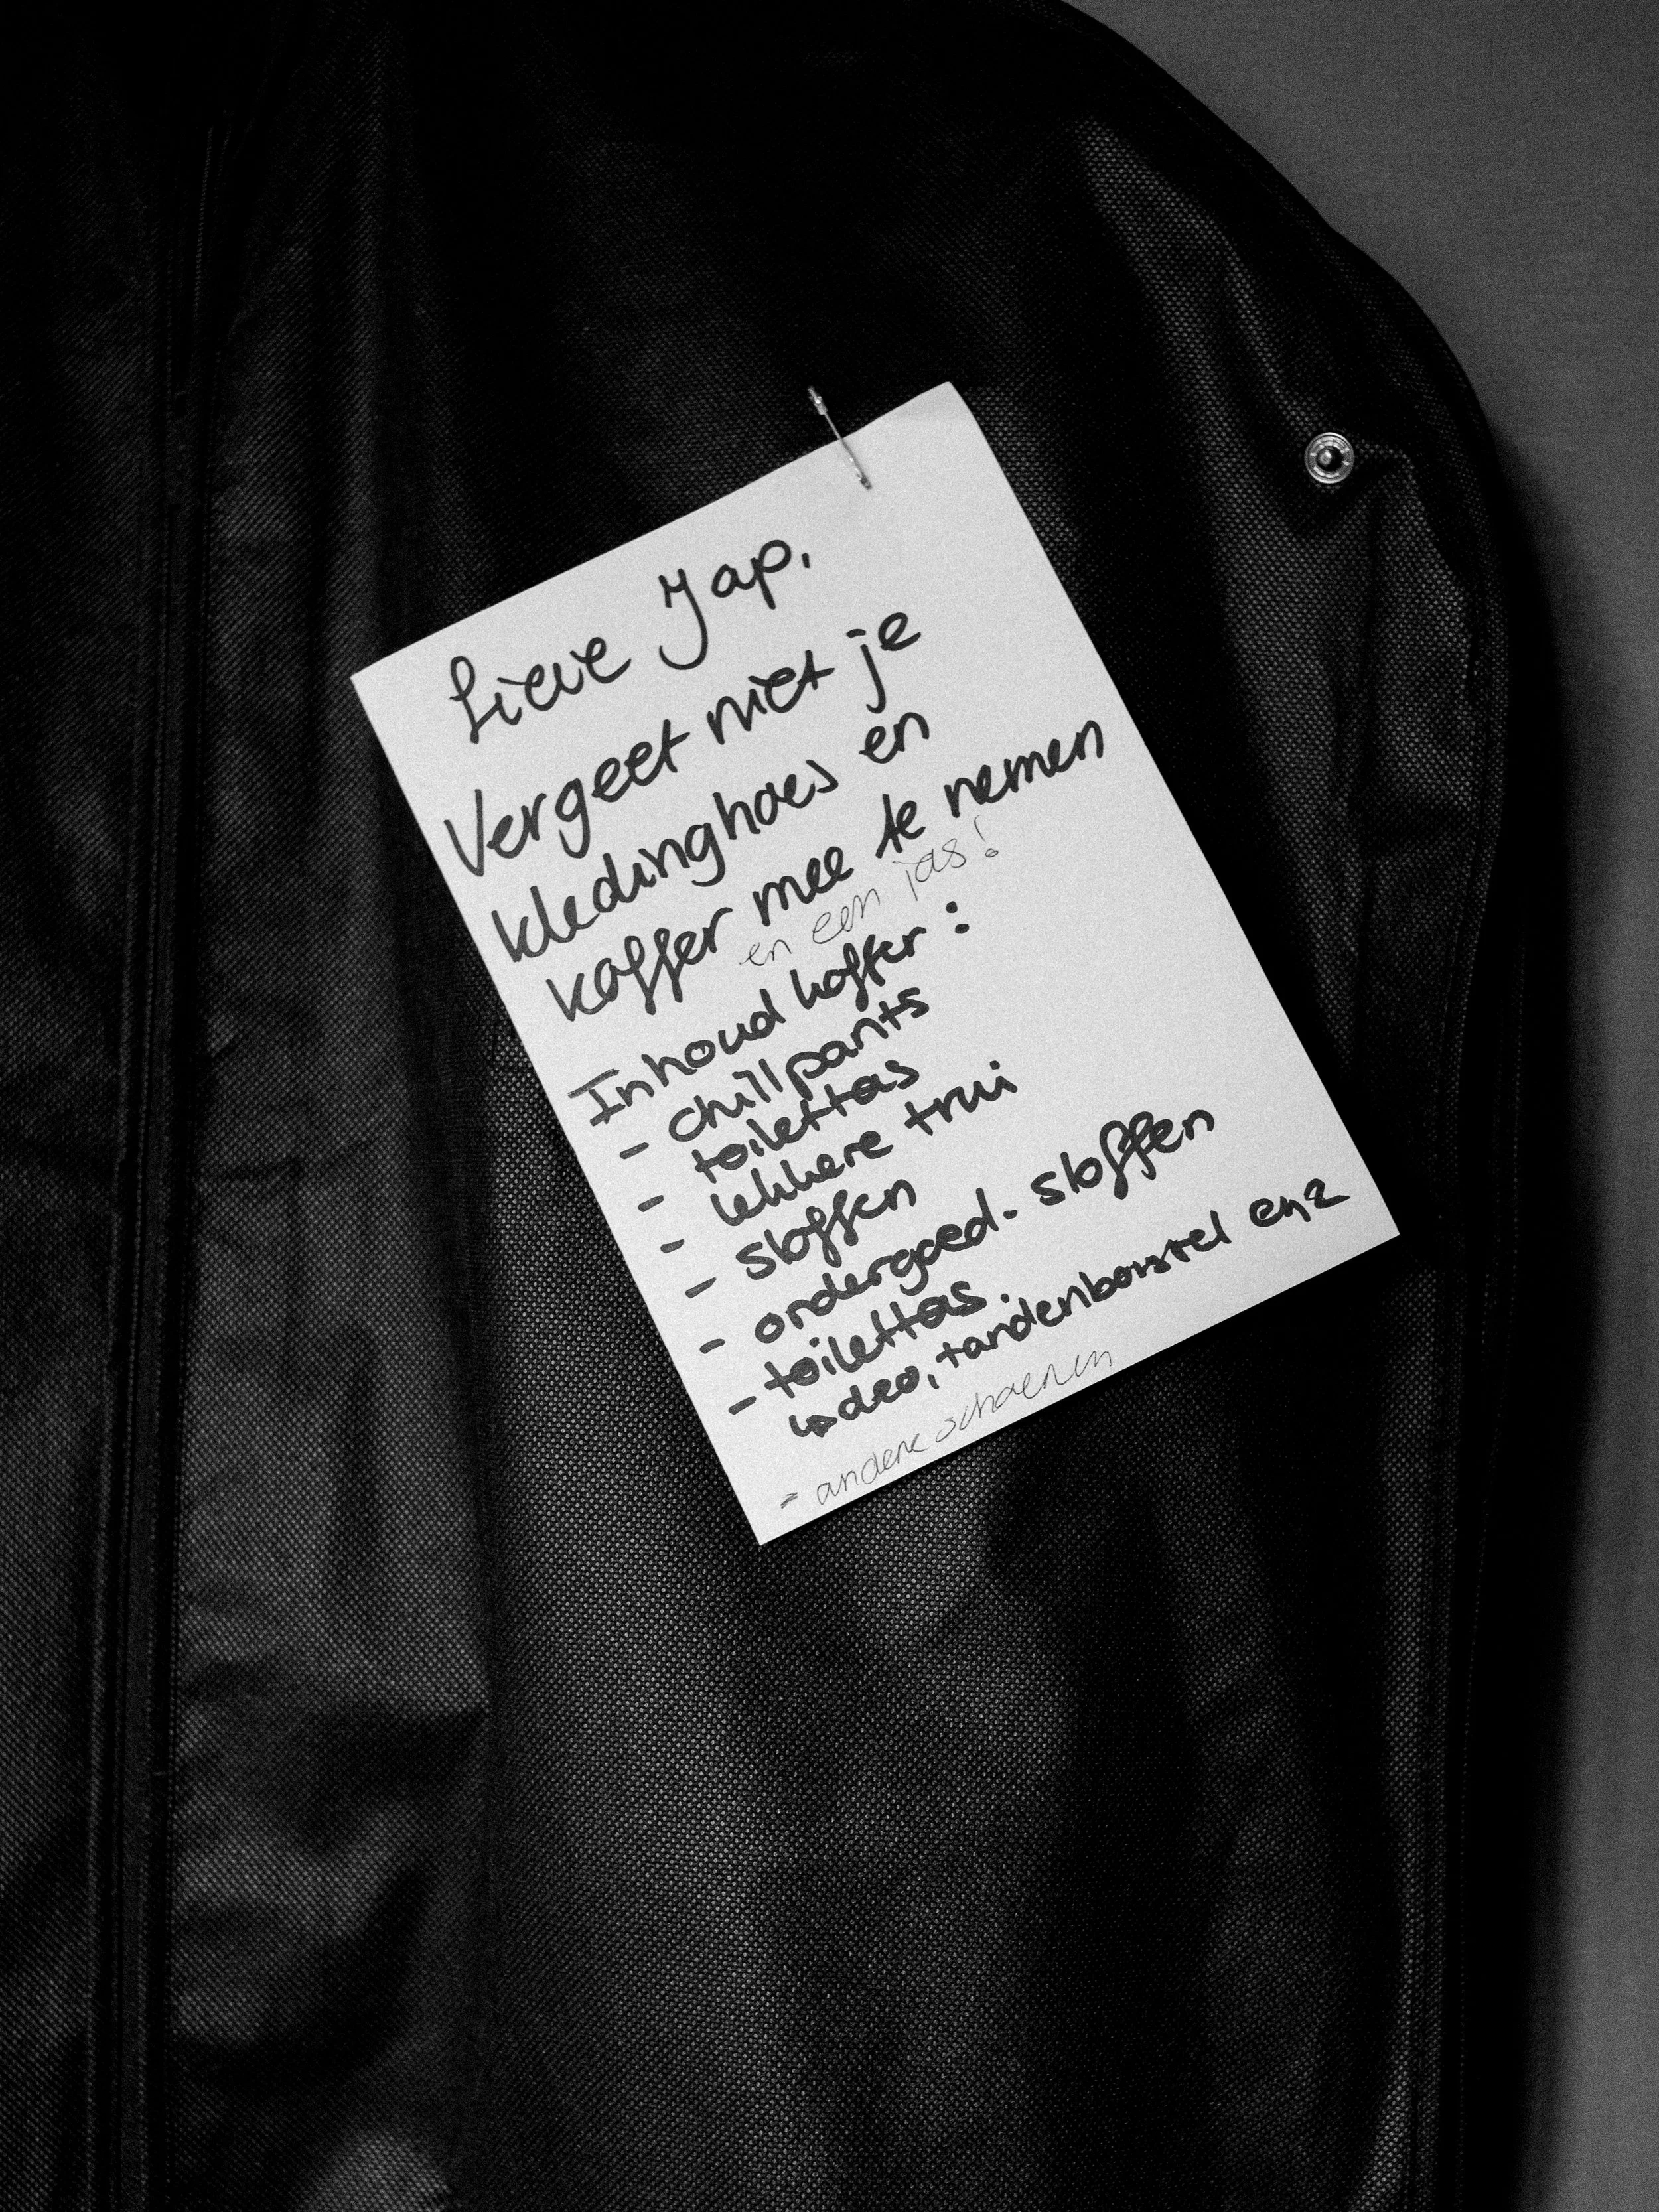 Lieve Jap,
Vergeet niet je
kledinghoes en
koffer mee te nemen
en een jas!
Inhoud koffer:
- chillpants
- toilettas
- lekkere trui
- sloffen
- ondergoed. sloffen
- toilettas.
↳ deo, tandenborstel enz
- andere schoenen